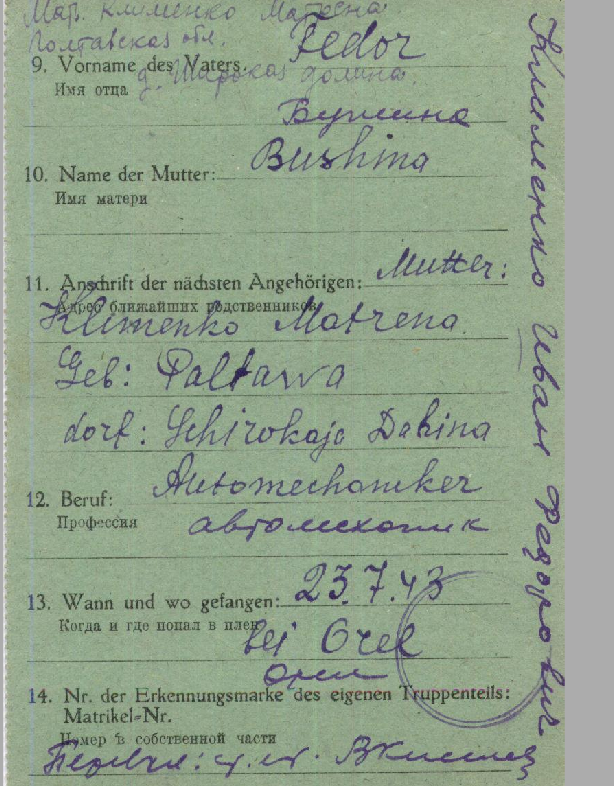 Мар. Клименко Матрена
Полтавская обл.
Fedor
9. Vorname des Vaters:
д. Широкая долина.
Имя отца
Бушина
Bushina
10. Name der Mutter:
Имя матери
Mutter:
11. Anschrift der nächsten Angehörigen:
Адрес ближайших родственников
Klimenko Matrena.
Geb: Paltawa
dorf: Schirokaja Dahina
Automechaniker
12. Beruf:
Профессия
автомеханик
23.7.43
13. Wann und wo gefangen:
Когда и где попал в плен
bei Orel
Орел
14. Nr. der Erkennungsmarke des eigenen Truppenteils:
Matrikel-Nr.
Номер в собственной части
Клименко Иван Федорович